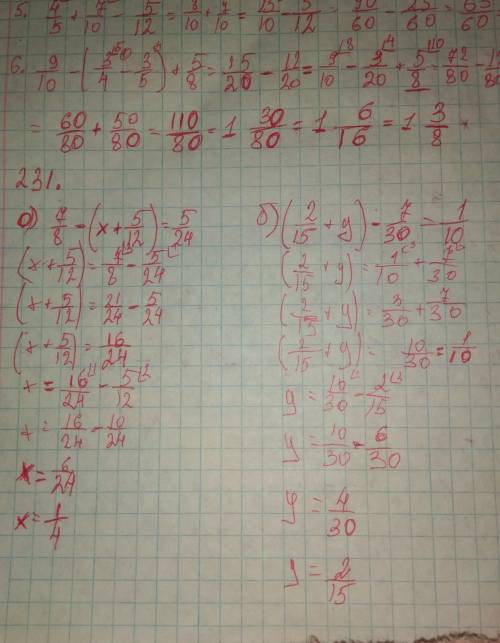 5. 4/5 + 7/10 - 5/12 = 8/10 + 7/10 = 15/10 - 5/12 = 90/60 - 25/60 = 65/60
6. 9/10 - (3/4 - 3/5) + 5/8 = 15/20 - 12/20 = 9/10 - 3/20 + 5/8 = 72/80 - 12/80
= 60/80 + 50/80 = 110/80 = 1 30/80 = 1 6/16 = 1 3/8
231.
а) 7/8 - (x + 5/12) = 5/24
(x + 5/12) = 7/8 - 5/24
(x + 5/12) = 21/24 - 5/24
(x + 5/12) = 16/24
x = 16/24 - 5/12
x = 16/24 - 10/24
x = 6/24
x = 1/4
б) (2/15 + y) - 7/30 = 1/10
(2/15 + y) = 1/10 + 7/30
(2/15 + y) = 3/30 + 7/30
(2/15 + y) = 10/30 = 1/10
y = 10/30 - 2/15
y = 10/30 - 6/30
y = 4/30
y = 2/15